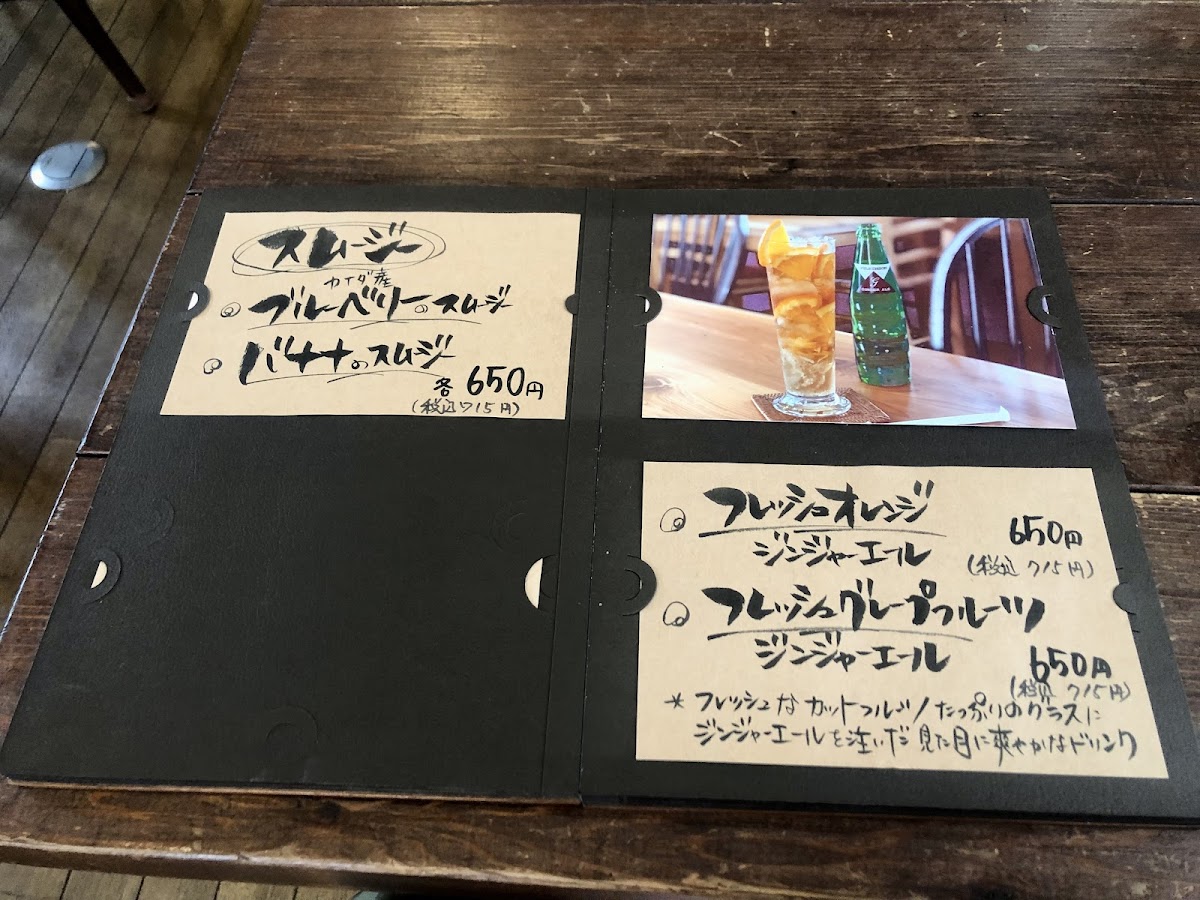 スムージー
カイダ産
ブルーベリーのスムージー
バナナのスムージー
各 650円
(税込 715円)
フレッシュオレンジ
ジンジャーエール
650円
(税込 715円)
フレッシュグレープフルーツ
ジンジャーエール
650円
(税込 715円)
* フレッシュなカットフルーツたっぷりのグラスに
ジンジャーエールを注いだ見た目に爽やかなドリンク